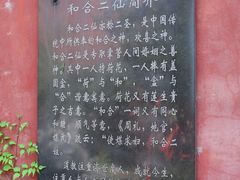 和合二仙简介
和合二仙亦称二圣，是中国传
统中所供奉的和合之神，欢喜之神。
和合二仙是专职掌管人间婚姻之喜
神。其中一人持荷花，一人捧有盖
圆盒，“荷”与“和”、“盒”与
“合”谐音寓意。荷花又有莲生贵
子之寓意。和合二一词又有同心
和睦，顺气等意，《周礼，地官，
媒氏》疏云：“使媒求妇，和合二
姓。”
道教注重济世